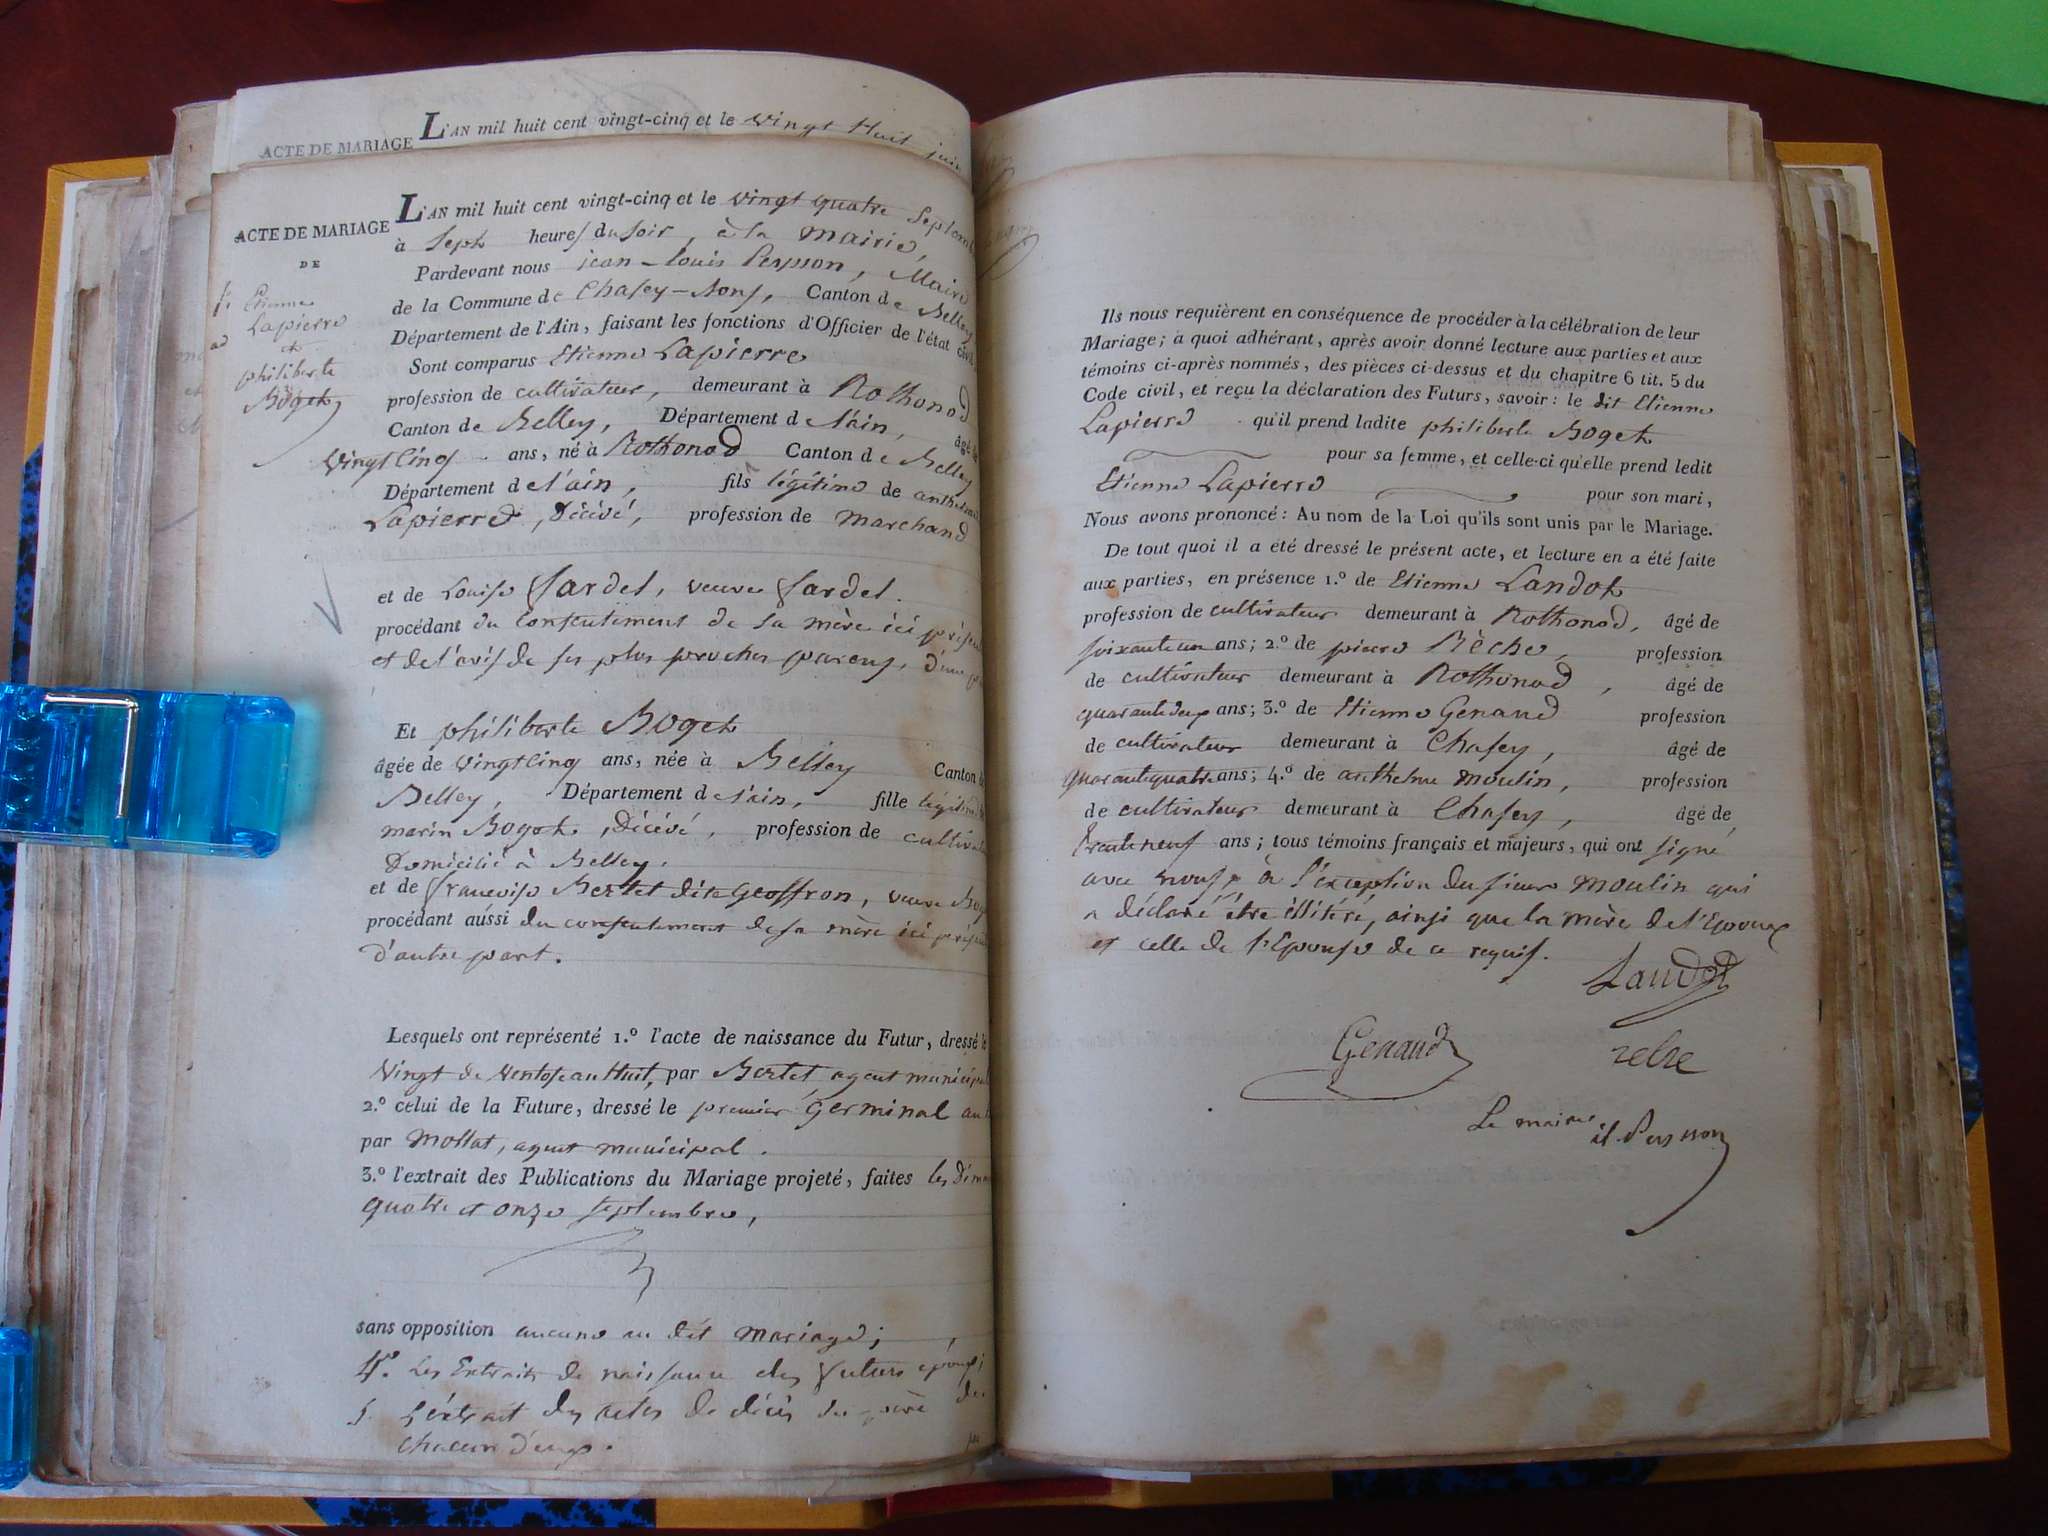 ACTE DE MARIAGE L'AN mil huit cent vingt-cinq et le vingt Huit juin
ACTE DE MARIAGE
DE
Etienne
Lapierre
et
philiberte
Boget
L'AN mil huit cent vingt-cinq et le vingt quatre Septemb
à Sept heures du soir, à la mairie,
Pardevant nous jean-louis Peysson, Maire
de la Commune de Chasey-Bons, Canton de Belley
Département de l'Ain, faisant les fonctions d'Officier de l'état civil
Sont comparus Etienne Lapierre
profession de cultivateur, demeurant à Rothonod
Canton de Belley, Département de l'ain, âgé de
vingt Cinq ans, né à Rothonod Canton de Belley
Département de l'ain, fils légitime de anthelme
Lapierre, Décédé, profession de marchand
et de Louise Sardet, veuve Sardet.
procédant du Consentement de sa mère ici présen
et de l'avis de ses plus proches parens, d'une p
Et philiberte Boget
âgée de vingt Cinq ans, née à Belley Canton de
Belley, Département de l'ain, fille légitime
marin Boget, Décédé, profession de cultivat
Domicilié à Belley.
et de françoise Bertet dite Geoffron, veuve Bog
procédant aussi du consentement de sa mère ici présen
d'autre part.
Lesquels ont représenté 1.º l'acte de naissance du Futur, dressé le
vingt de Ventose an Huit, par Bertet, agent municipal
2.º celui de la Future, dressé le premier Germinal an
par Mollat, agent municipal.
3.º l'extrait des Publications du Mariage projeté, faites les Dim
quatre et onze septembre,
sans opposition aucune au dit mariage;
4º. Les Extraits de naissance des futurs époux;
5. L'éxtrait des actes de décès du père de
chacun d'eux.
Ils nous requièrent en conséquence de procéder à la célébration de leur
Mariage; à quoi adhérant, après avoir donné lecture aux parties et aux
témoins ci-après nommés, des pièces ci-dessus et du chapitre 6 tit. 5 du
Code civil, et reçu la déclaration des Futurs, savoir: le dit Etienne
Lapierre qu'il prend ladite philiberte Boget
pour sa femme, et celle-ci qu'elle prend ledit
Etienne Lapierre pour son mari,
Nous avons prononcé: Au nom de la Loi qu'ils sont unis par le Mariage.
De tout quoi il a été dressé le présent acte, et lecture en a été faite
aux parties, en présence 1.º de Etienne Landot
profession de cultivateur demeurant à Rothonod, âgé de
soixante un ans; 2.º de pierre Rèche, profession
de cultivateur demeurant à Rothonod, âgé de
quarante deux ans; 3.º de Etienne Genaud profession
de cultivateur demeurant à Chasey, âgé de
quarante quatre ans; 4.º de anthelme moulin, profession
de cultivateur demeurant à Chasey, âgé de
trente neuf ans; tous témoins français et majeurs, qui ont signé
avec nous, à l'exception du sieur moulin qui
a déclaré être illitéré, ainsi que la mère de l'Epoux
et celle de l'Epouse de ce requis.
Landot
Genaud
Le maire